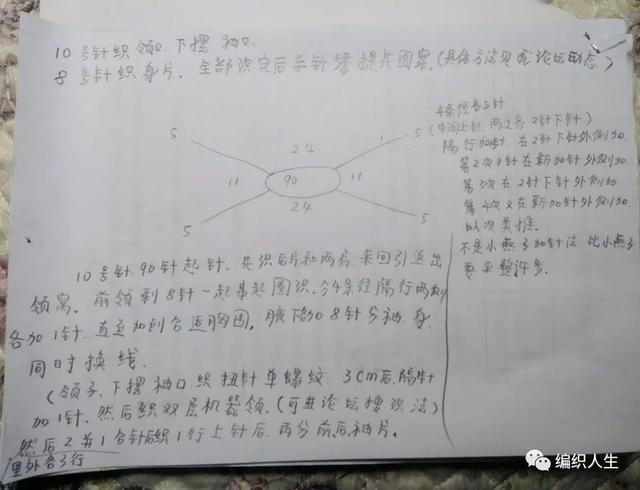 10号针织领口.下摆.袖口.
8号针织身片.全部织完后手针提花图案.(具体方法见论坛动态)
5
24
5
11
90
11
5
24
5
4条径各5针
(中间上针,两边各2针下针)
隔行加针.在2针下针外侧加.
第2次针在新加针外侧加
第3次在2针下针外侧加
第4次又在新加针外侧加
以次类推.
不是小燕子加针法 比小燕子
要平整许多.
10号针.90针起针.先织后片和两肩.来回引返出
领窝.前领剩8针一起串起圈织.分4条径隔行两侧
各加1针.直至加到合适胸围.腋下加8针分袖.身.
同时换线.
(领子、下摆袖口.织扭针单螺纹.3cm后.隔针
加1针.然后织双层机器领.(可进论坛搜织法)
然后2并1合针后织1行上针后.再分前后袖片。
里外各3行
编织人生